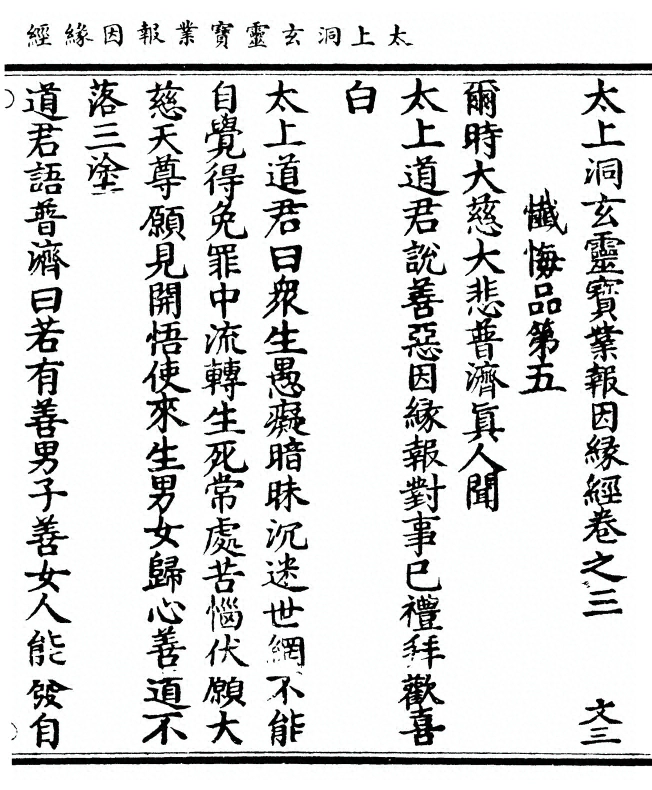 太上洞玄靈寶業報因緣經
太上洞玄靈寶業報因緣經卷之三 文三
懺悔品第五
爾時大慈大悲普濟眞人聞
太上道君說善惡因緣報對事已禮拜歡喜
白
太上道君曰衆生愚癡暗昧沉迷世網不能
自覺得免罪中流轉生死常處苦惱伏願大
慈天尊願見開悟使來生男女歸心善道不
落三塗
道君語普濟曰若有善男子善女人能發自